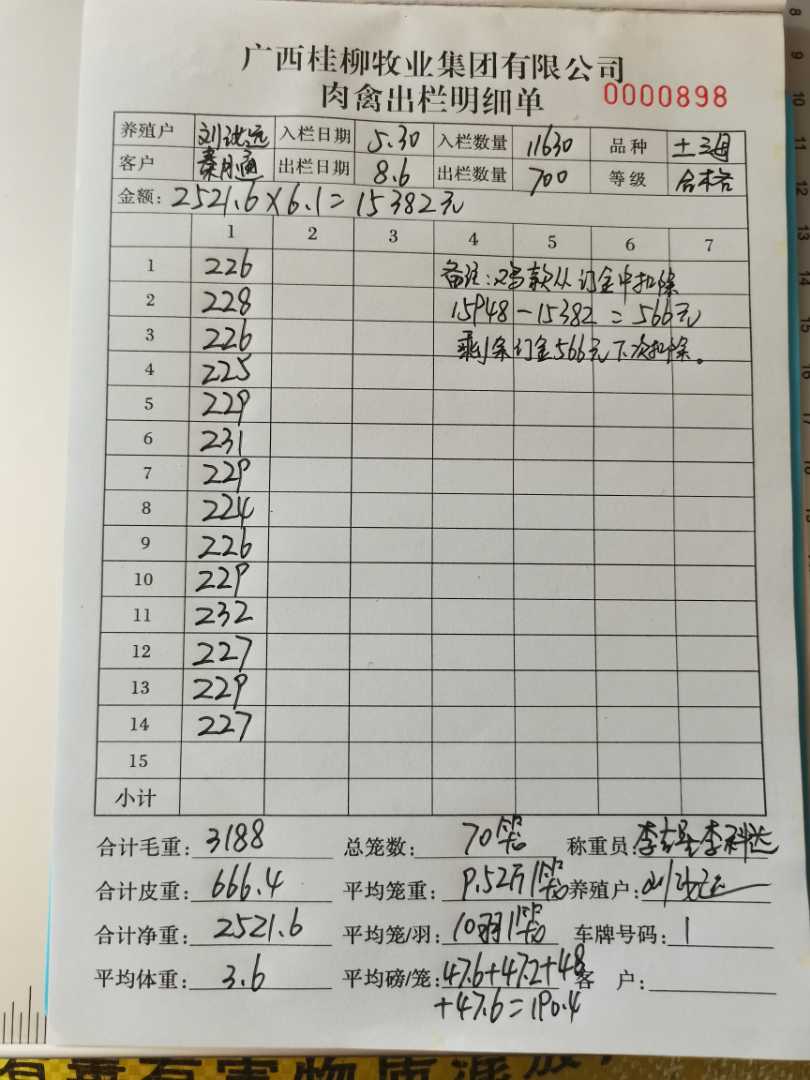 广西桂柳牧业集团有限公司
肉禽出栏明细单 0000898
养殖户 入栏日期 5.30 入栏数量 11630 品种 土三母
客户 出栏日期 8.6 出栏数量 700 等级 合格
金额: 2521.6×6.1=15382元
1 2 3 4 5 6 7
1 226 备注:鸡款从订金中扣除
2 228 15948-15382=566元
3 226 剩余订金566元下次扣除。
4 225
5 229
6 231
7 229
8 224
9 226
10 229
11 232
12 227
13 229
14 227
15
小计
合计毛重: 3188 总笼数: 70笼 称重员:
合计皮重: 666.4 平均笼重: 9.52斤/笼 养殖户:
合计净重: 2521.6 平均笼/羽: 10羽/笼 车牌号码: 1
平均体重: 3.6 平均磅/笼: 47.6+47.2+48 客 户:
+47.6=190.4